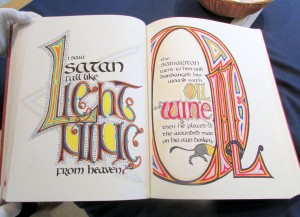 I saw
Satan
fall like
Light
ning
from heaven
the
samaritan
went to him and
bandaged his
wounds with
OIL
and wine
then he placed
the wounded man
on his own donkey.